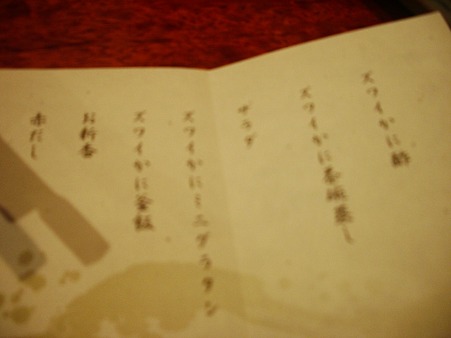 ズワイかに酢
ズワイかに茶碗蒸し
サラダ
ズワイかにミニグラタン
ズワイかに釜飯
お新香
赤だし